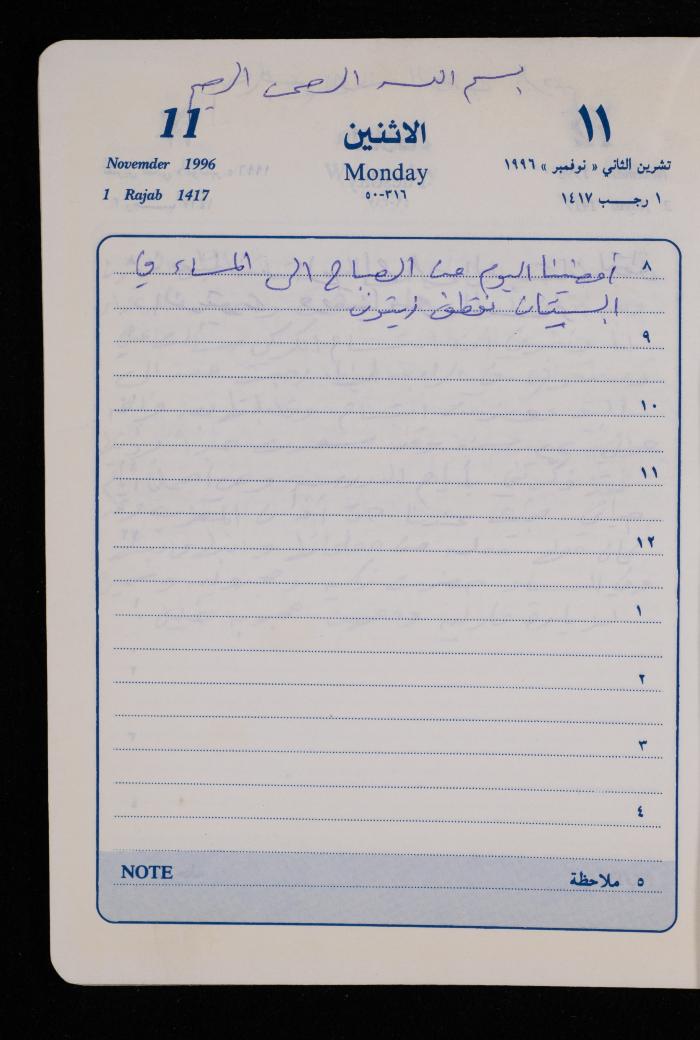 بسم الله الرحمن الرحيم
11 الاثنين ١١
Novemder 1996 Monday تشرين الثاني « نوفمبر » ١٩٩٦
1 Rajab 1417 ٣١٦-٥٠ ١ رجـــب ١٤١٧
٨ أمضينا اليوم من الصباح الى المساء في
البستان نقطف زيتون
٩
١٠
١١
١٢
١
٢
٣
٤
NOTE ٥ ملاحظة